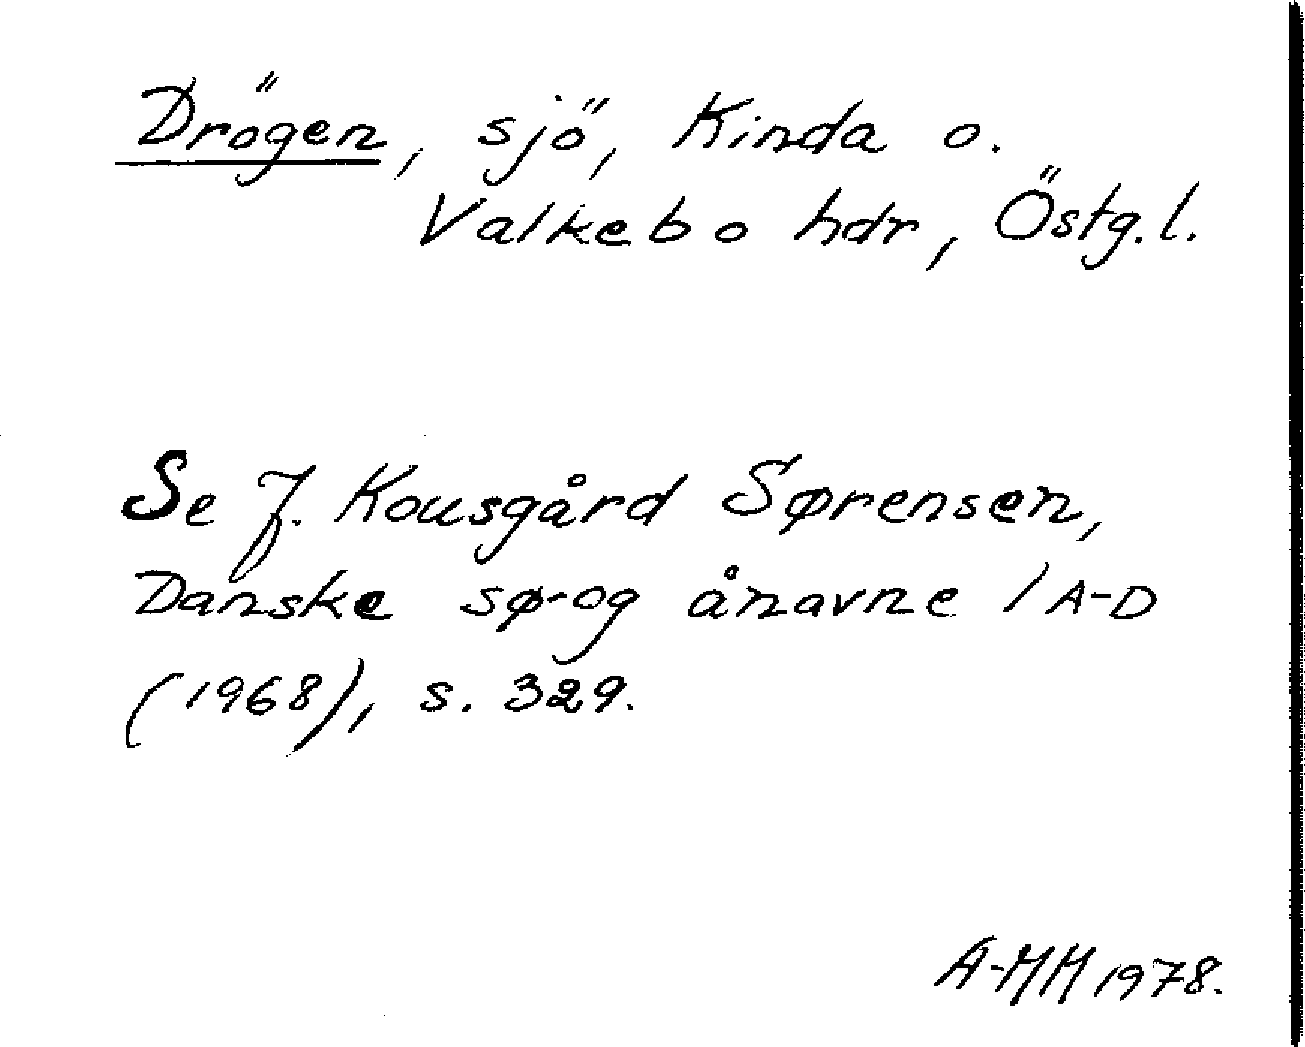 Drögen, sjö, Kinda o.
Valkebo hdr, Östg.l.
Se J. Kousgård Sørensen,
Danske sø- og ånavne 1 A-D
(1968), s. 329.
A-MM 1978.